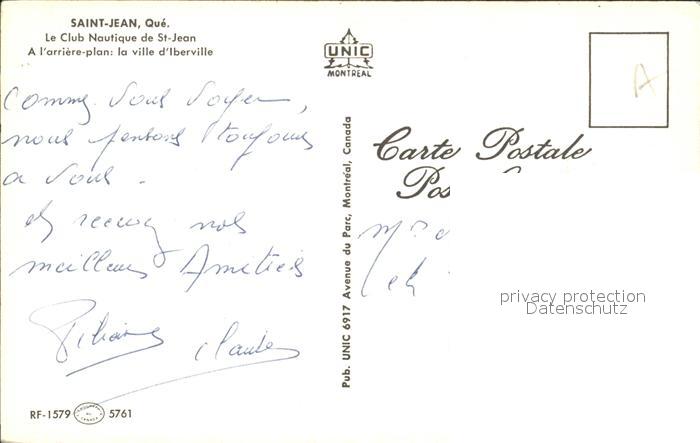 SAINT-JEAN, Qué.
Le Club Nautique de St-Jean
A l'arrière-plan: la ville d'Iberville
UNIC
MONTREAL
A
Comme vous voyez,
nous pensons toujours
a vous.
recevez nos
meilleurs Amitiés
Claude
Pub. UNIC 6917 Avenue du Parc, Montréal, Canada
Carte Postale
Pos
privacy protection
Datenschutz
RF-1579
5761